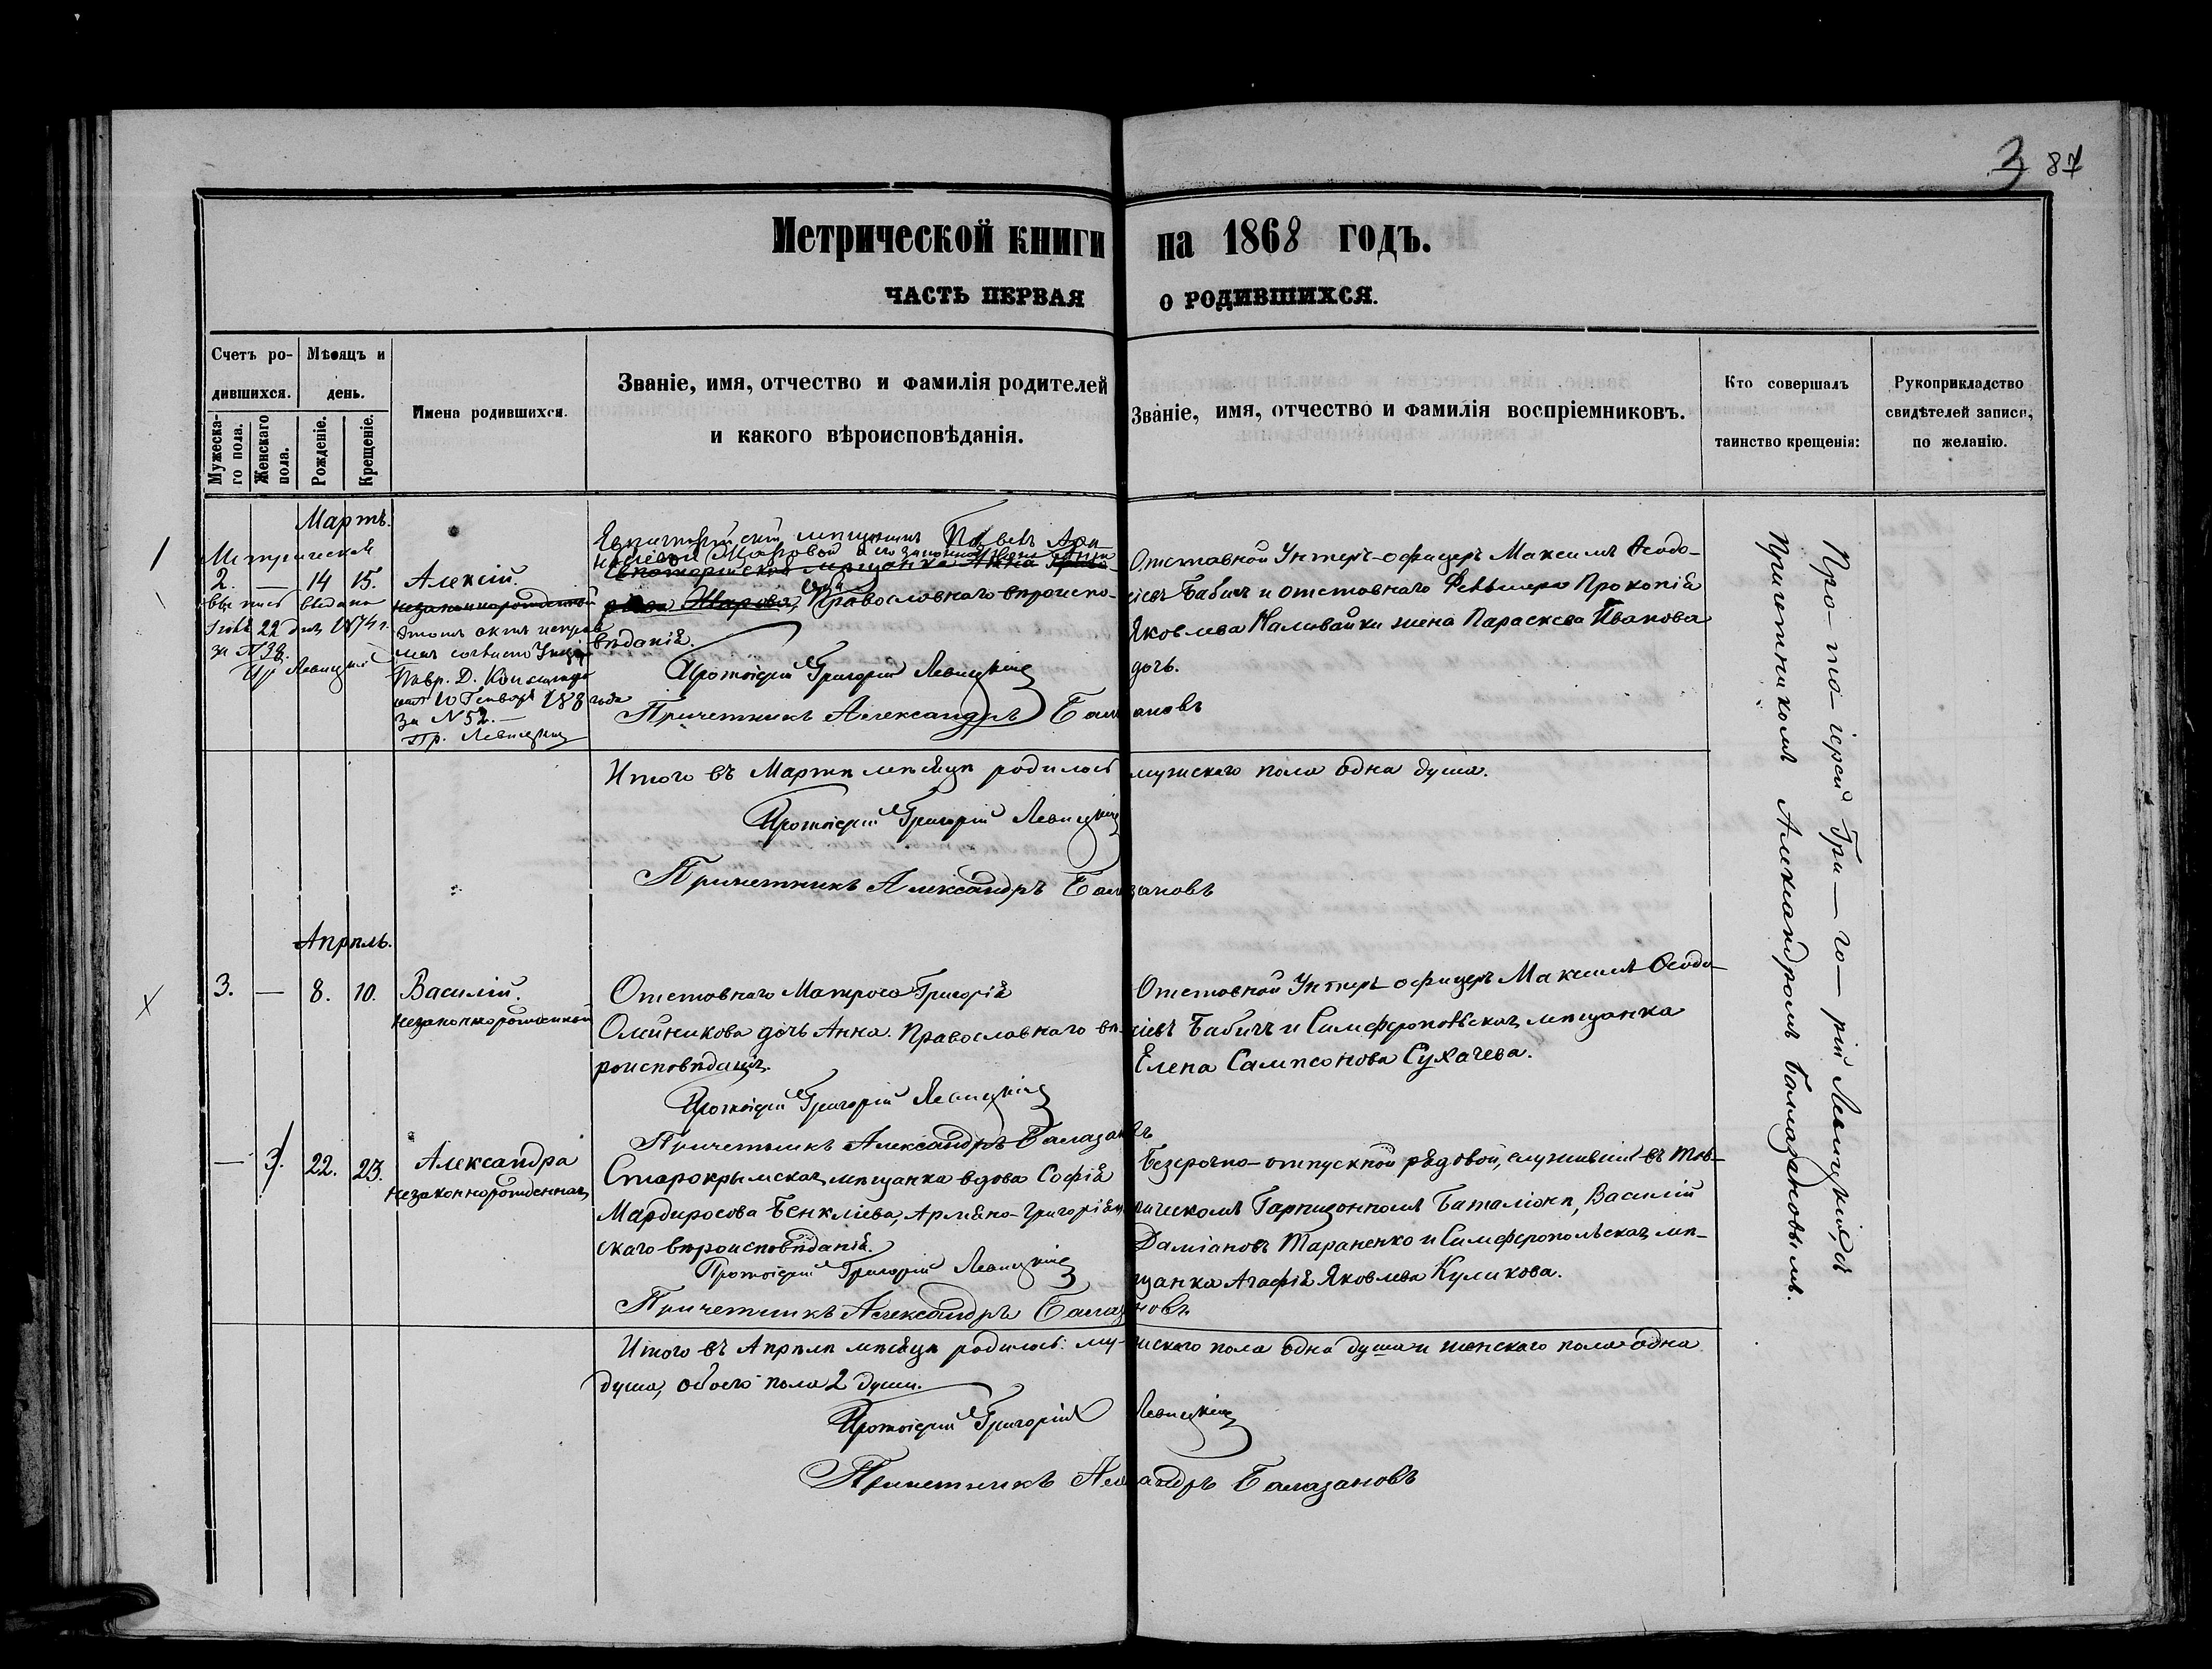 3 87
Метрической книги на 1868 годъ.
ЧАСТЬ ПЕРВАЯ О РОДИВШИХСЯ.
Счетъ родившихся.
Мужескаго пола.
Женскаго пола.
Мѣсяцъ и день.
Рожденіе.
Крещеніе.
Имена родившихся.
Званіе, имя, отчество и фамилія родителей
и какого вѣроисповѣданія.
Званіе, имя, отчество и фамилія воспріемниковъ.
Кто совершалъ
таинство крещенія:
Рукоприкладство
свидѣтелей записи,
по желанію.
Мартъ.
2. — 14 15. Алексій.
незаконнорожденный
Метрической
выпись выдана
22 1874 г.
за № 38.
Левицкій
Этотъ актъ
Тавр. Д.
за № 52. —
Пр. Левицкій
мѣщанинъ
Евпаторійская мѣщанка Анна
Жарова, Православнаго вѣроиспо-
вѣданія.
Протоіерей Григорій Левицкій
Причетникъ Александръ Балазановъ
Отставной Унтеръ-офицеръ Максимъ Ѳеодо-
сіевъ Бабичъ и отставнаго Прокопія
Яковлева Наливайки жена Параскева Иванова
дочь.
Итого въ Мартѣ мѣсяцѣ родилось мужскаго пола одна душа.
Протоіерей Григорій Левицкій
Причетникъ Александръ Балазановъ
Апрѣль.
3. — 8. 10. Василій.
незаконнорожденный
Отставнаго Матроса Григорія
Олийникова дочь Анна. Православнаго вѣ-
роисповѣданія.
Протоіерей Григорій Левицкій
Причетникъ Александръ Балазановъ
Отставной Унтеръ-офицеръ Максимъ Ѳеодо-
сіевъ Бабичъ и Симферопольская мѣщанка
Елена Сампсонова Сухачева.
— 3. 22. 23. Александра
незаконнорожденная
Старокрымская мѣщанка вдова Софія
Мардиросова Бенкліева, Армяно-Григоріан-
скаго вѣроисповѣданія.
Протоіерей Григорій Левицкій
Причетникъ Александръ Балазановъ
Безсрочно-отпускной рядовой, служившій въ Тав-
рическомъ Гарнизонномъ Баталіонѣ, Василій
Даміановъ Тараненко и Симферопольская мѣ-
щанка Агафія Яковлева Куликова.
Итого въ Апрѣлѣ мѣсяцѣ родилось: мужскаго пола одна душа и женскаго пола одна
душа, обоего пола 2 души.
Протоіерей Григорій Левицкій
Причетникъ Александръ Балазановъ
Про-то-іерей Гри-го-рій Левицкій съ
Причетникомъ Александромъ Балазановымъ.